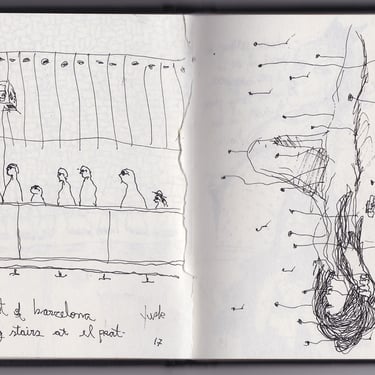 t of barcelona
g stairs at el prat.
17